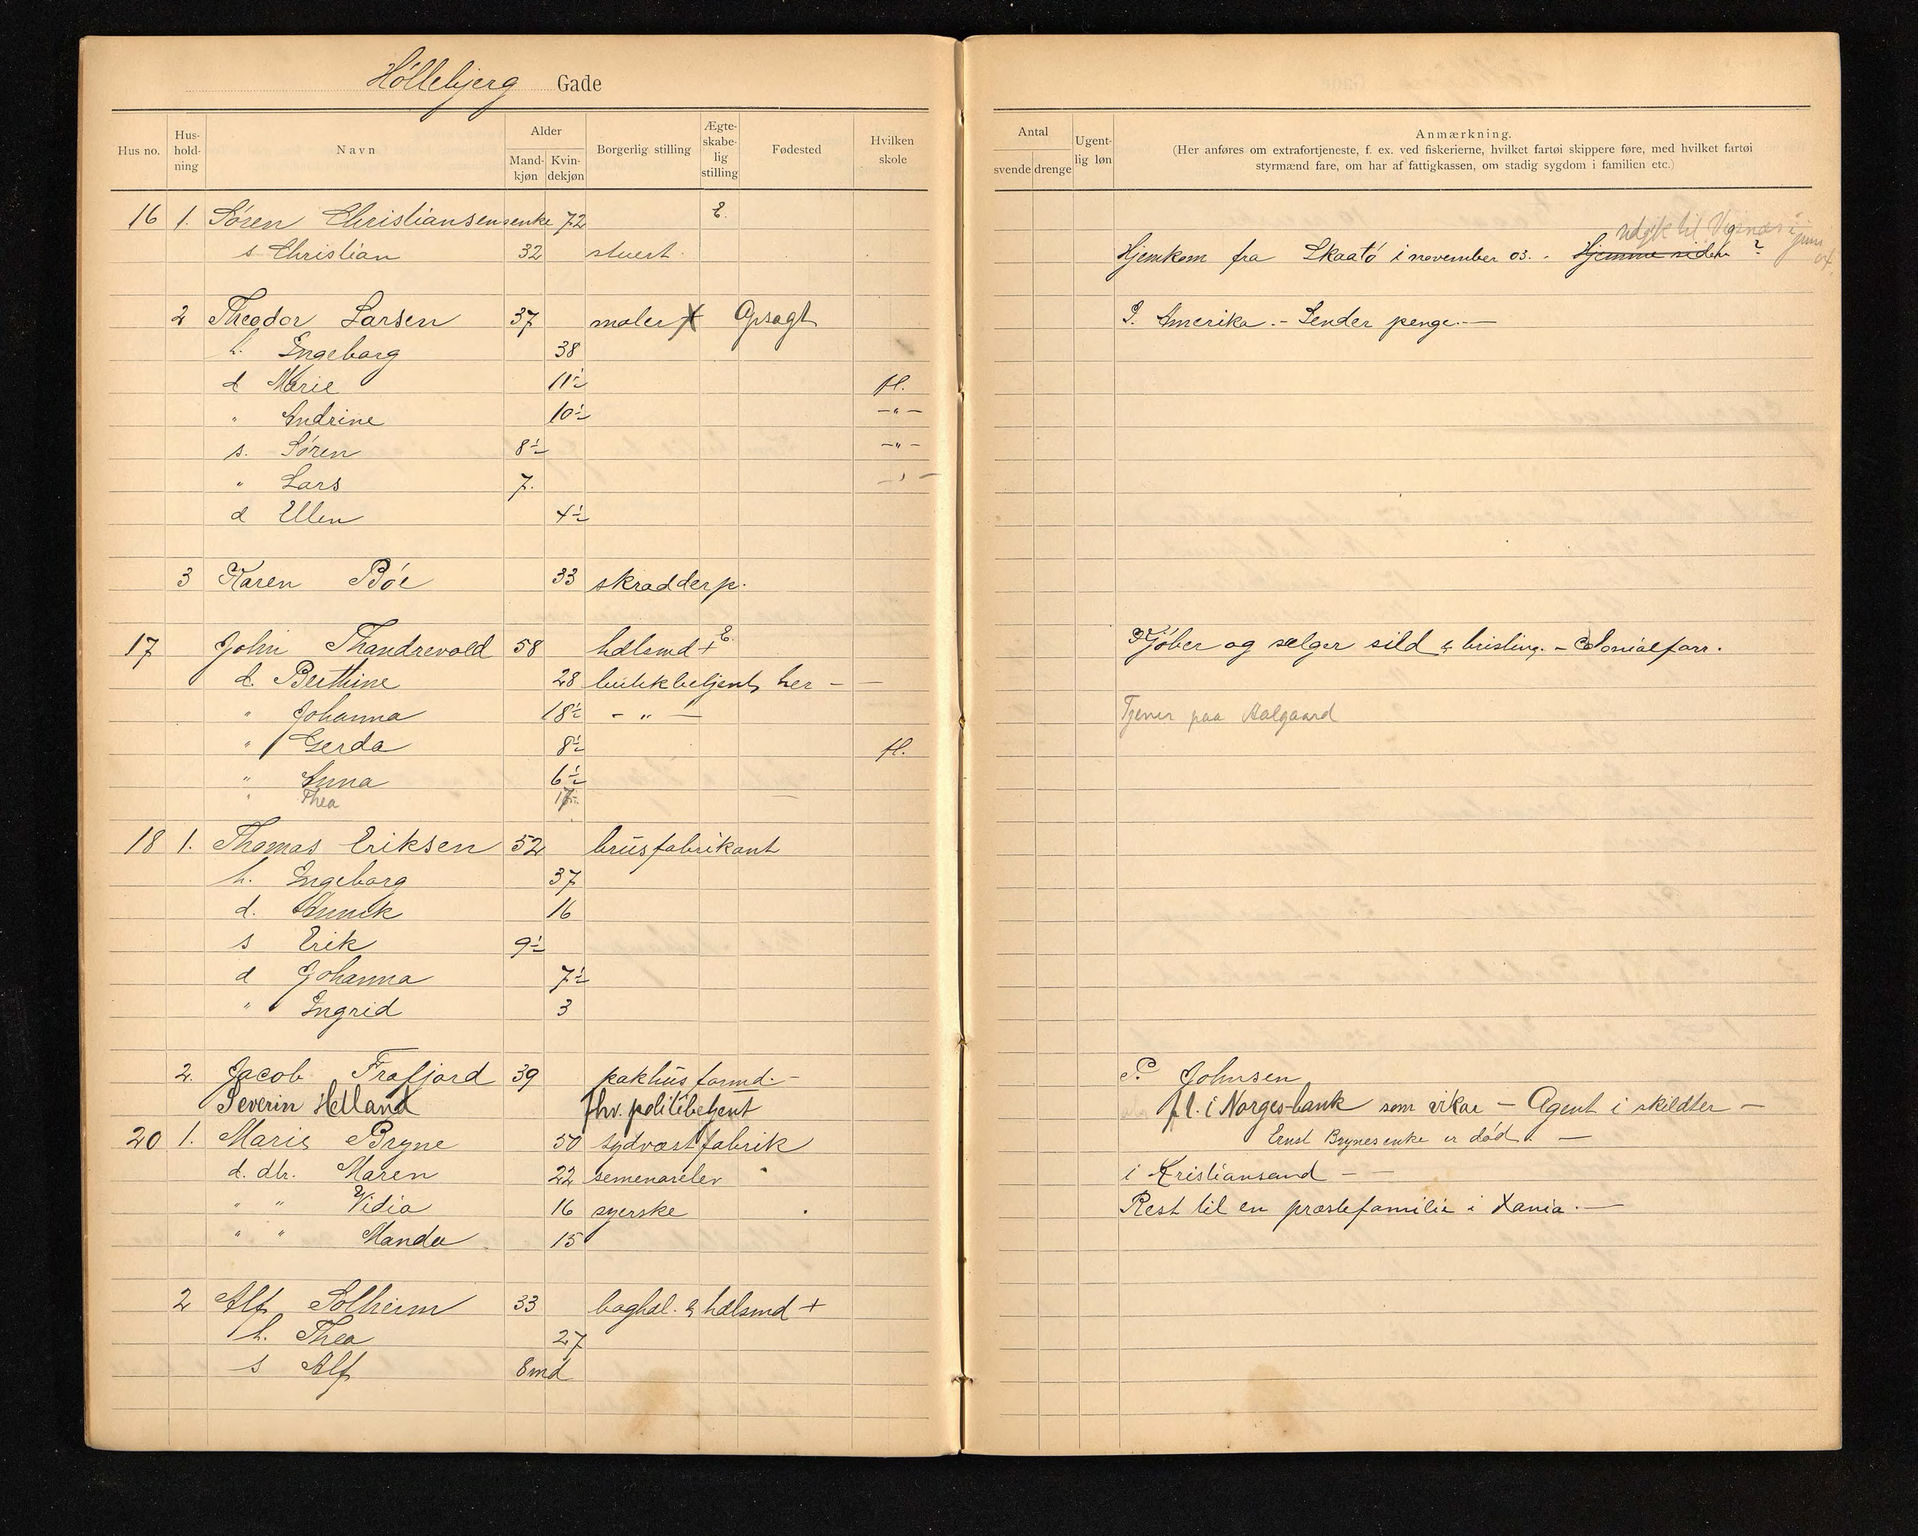 Höllebjerg Gade
Hus no. Hus-hold-ning Navn Alder Mand-kjøn Kvin-dekjøn Borgerlig stilling Ægte-skabe-lig stilling Fødested Hvilken skole
Antal svende drenge Ugent-lig løn Anmærkning.
(Her anføres om extrafortjeneste, f. ex. ved fiskerierne, hvilket fartøi skippere føre, med hvilket fartøi
styrmænd fare, om har af fattigkassen, om stadig sygdom i familien etc.)
16 1. Sören Christiansens enke 72 E.
s Christian 32 stuert. Hjemkom fra Skaatö i november 03. - Hjemme siden ?
2 Theodor Larsen 37 maler Opsagt I. Amerika. - Sender penge. —
h. Ingeborg 38
d Marie 11½ fl.
" Andrine 10½ —"—
s. Sören 8½ —"—
" Lars 7.
d Ellen 4½
3 Karen Böe 33 skradderp.
17 John Thandrevold 58 hdlsmd + E. Kjöber og sælger sild & brisling. - Colonialforr.
d. Berthine 28 butikbetjent her — —
" Johanna 18½ - " — Tjener paa Aalgaard
" Gerda 8½ fl.
" Anna 6½
" Thea 17
18 1. Thomas Eriksen 52 brusfabrikant
h. Ingeborg 37
d. Annik 16
s Erik 9½
d Johanna 7½
" Ingrid 3
2. Jacob Frafjord 39 pakhusformd. - P. Johnsen
Severin Helland fhv. politibetjent fl. i Norges-bank som vikar — Agent i skildter —
20 1. Marie Bryne 50 sydvestfabrik Ernst Brynes enke er död. —
d. dtr. Maren 22 semenarelev i Kristiansand — —
" " Vidia 16 syerske Rest til en præstefamilie i Xania. —
" " Manda 15
2 Alf Solheim 33 boghol. & hdlsmd +
h. Thea 27
s Alf 8 md